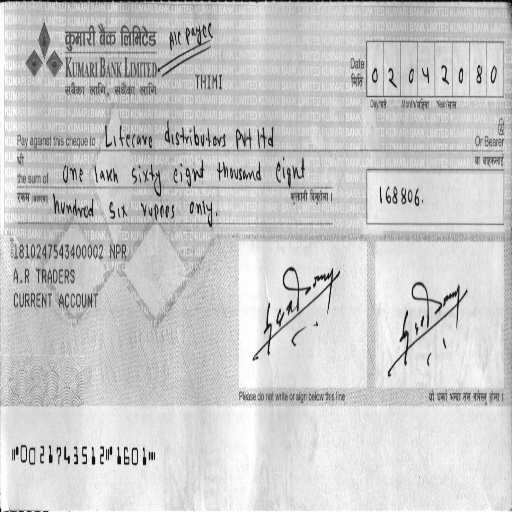 कुमारी बैंक लिमिटेड
KUMARI BANK LIMITED
सबैका लागि, सधैंका लागि
A/C payee
THIMI
Date
मिति
0 2 0 4 2 0 8 0
Day/गते Month/महिना Year/साल
Pay against this cheque to Litecare distributors Pvt ltd Or Bearer
श्री वा वाहकलाई
the sum of One lakh sixty eight thousand eight
रकम (अक्षरमा) hundred six rupees only. भुक्तानी दिनुहोला ।
168806.
1810247543400002 NPR
A.R TRADERS
CURRENT ACCOUNT
Please do not write or sign below this line
⑈0021743512⑈1601⑈